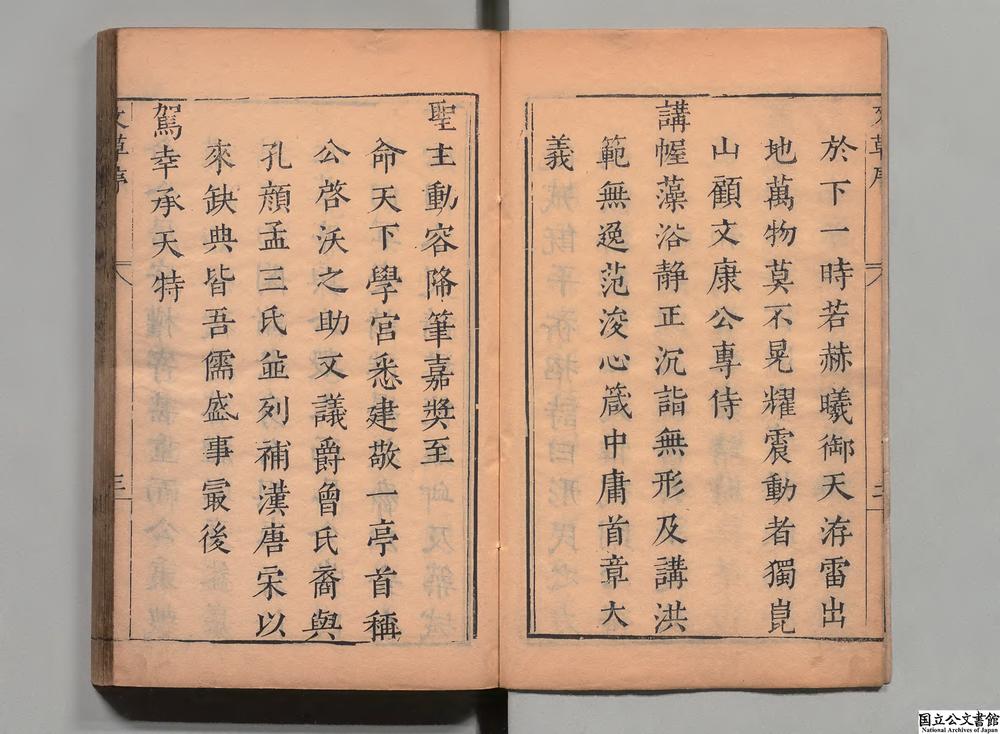 於下一時若赫曦御天洊雷出
地萬物莫不晃耀震動者獨崑
山顧文康公專侍
講幄藻浴靜正沉詣無形及講洪
範無逸范浚心箴中庸首章大
義
聖主動容降筆嘉奬至
命天下學宮悉建敬一亭首稱
公啓沃之助又議爵曾氏裔與
孔顏孟三氏並列補漢唐宋以
來缺典皆吾儒盛事最後
駕幸承天特
文草序
三
国立公文書館
National Archives of Japan